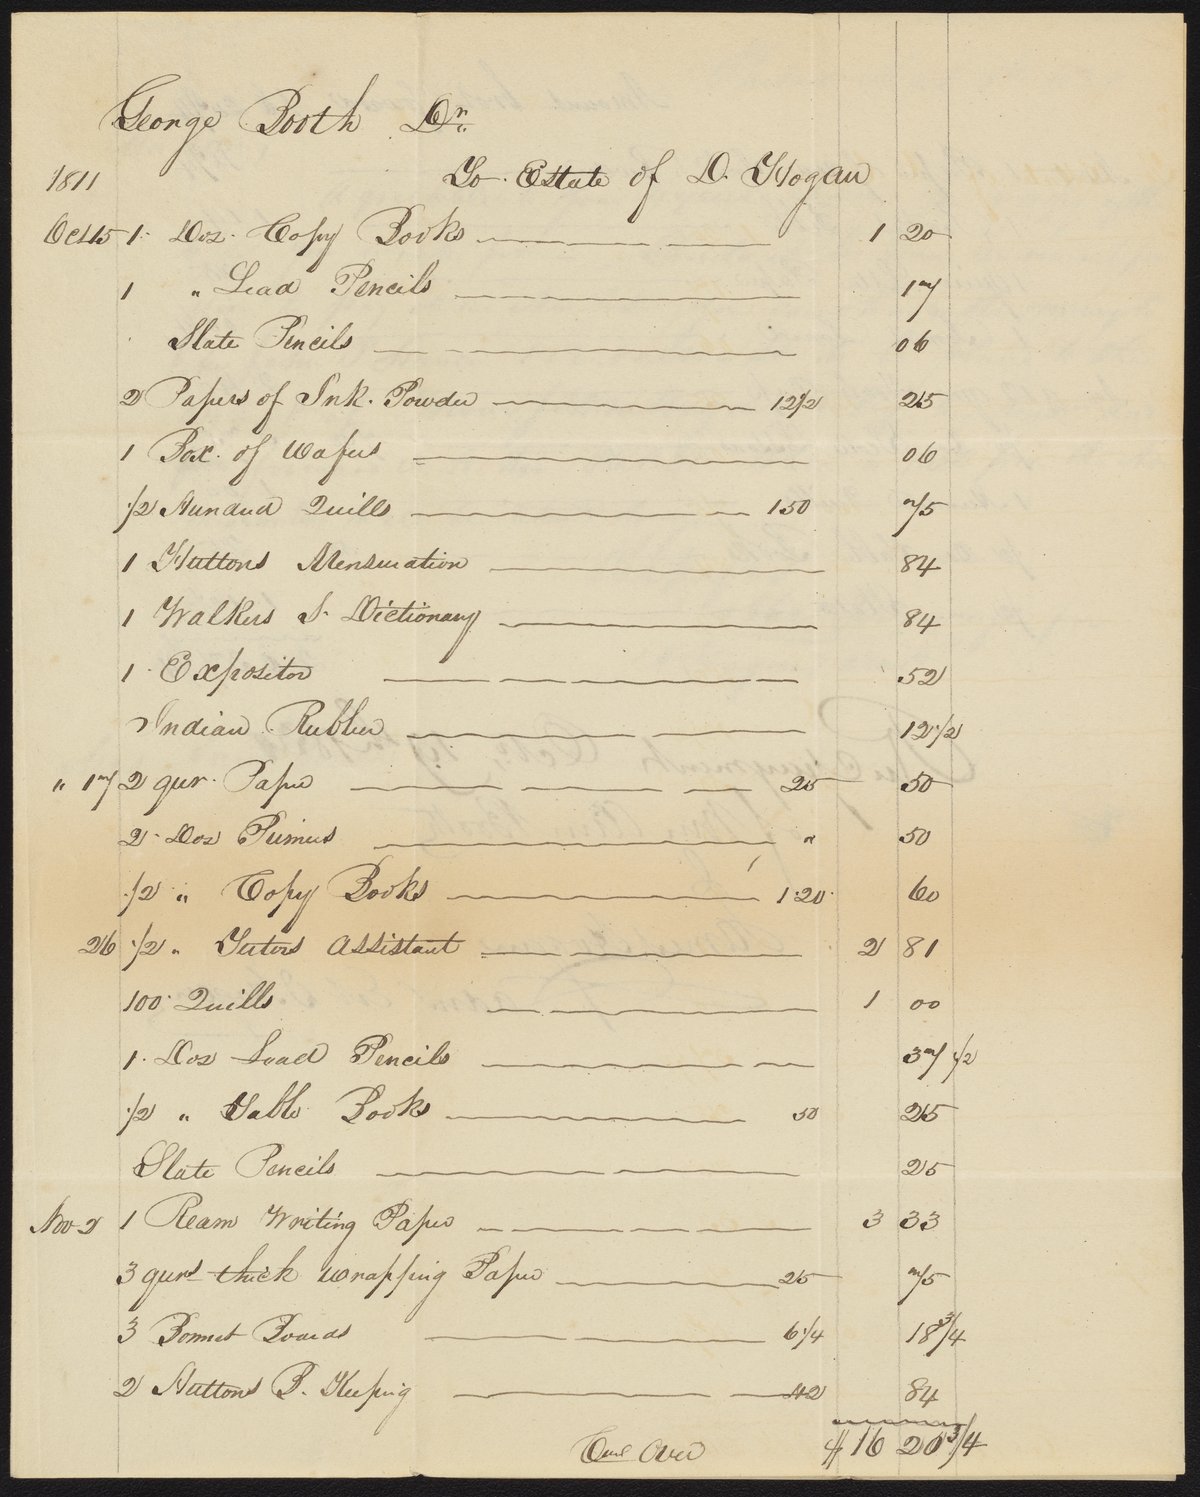 George Booth Dr.
To Estate of D. Hogan
1811
Oct 15 1 Doz. Copy Books 1 20
1 " Lead Pencils 17
Slate Pencils 06
2 Papers of Ink Powder 12 1/2 25
1 Box of Wafers 06
1/2 Hundred Quills 150 75
1 Huttons Mensuration 84
1 Walkers S. Dictionary 84
1 Expositor 52
Indian Rubber 12 1/2
" 17 2 qur. Paper 25 50
2 Doz Primers " 50
1/2 " Copy Books 1.20 60
26 1/2 " Tutors Assistant 2 81
100 Quills 1 00
1 Doz Lead Pencils 37 1/2
1/2 " Table Books 50 25
Slate Pencils 25
Nov 2 1 Ream Writing Paper 3 33
3 qurs thick wrapping Paper 25 75
3 Bonnet Boards 6 1/4 18 3/4
2 Huttons B. Keeping 42 84
Over $16 20 3/4